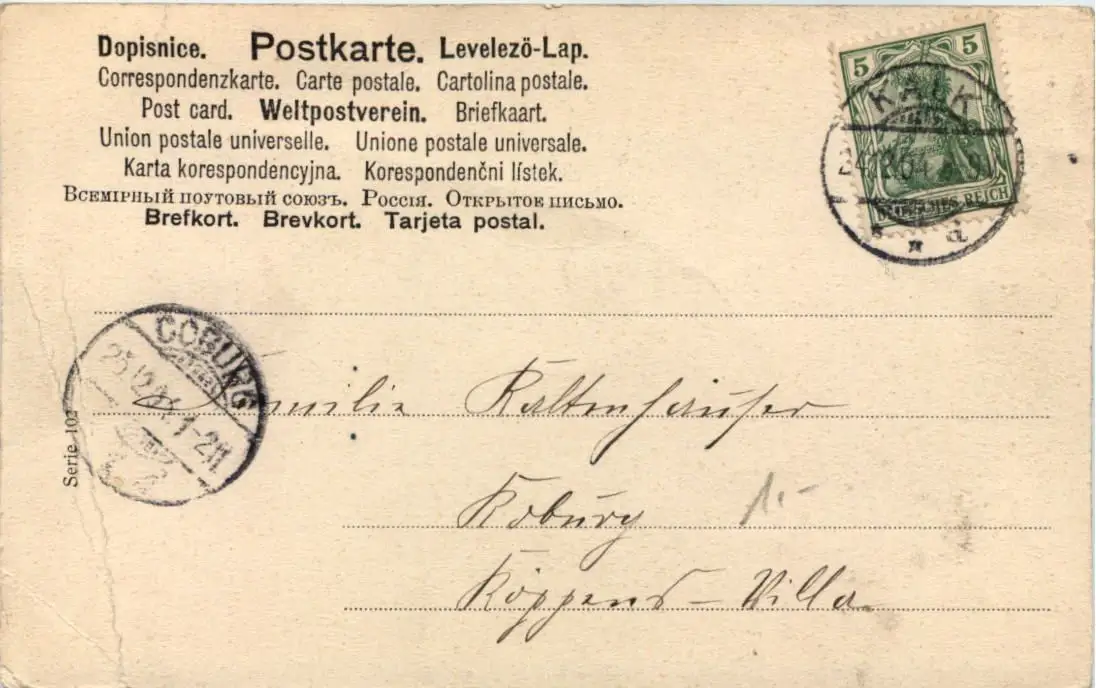 Dopisnice. Postkarte. Levelező-Lap.
Correspondenzkarte. Carte postale. Cartolina postale.
Post card. Weltpostverein. Briefkaart.
Union postale universelle. Unione postale universale.
Karta korespondencyjna. Korespondenčni lístek.
Всемірный поутовый союзъ. Россія. Открытое письмо.
Brefkort. Brevkort. Tarjeta postal.
5 5
DEUTSCHES REICH
KALK
COBURG
1-2N
Serie 102
Familie Kaltenhäuser
Koburg
Köppens-Villa